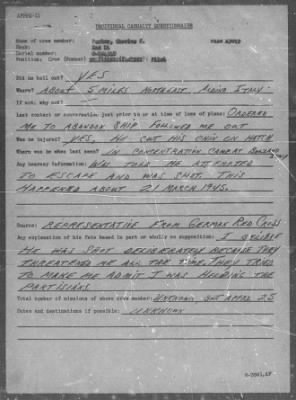 AFPPA-11
INDIVIDUAL CASUALTY QUESTIONNAIRE
Name of crew member:
Rank: 2nd Lt
Serial number:
Position: Crew (Bomber) Pilot
Did he bail out? YES
Where? ABOUT 5 MILES NORTHEAST ITALY
If not, why not?
Last contact or conversation just prior to or at time of loss of plane: ORDERED
ME TO ABANDON SHIP FOLLOWED ME OUT
Was he injured? YES, HE CUT HIS CHIN ON HATCH
Where was he when last seen? IN CONCENTRATION CAMP AT BOLZANO ITALY
Any hearsay information: WAS TOLD HE ATTEMPTED
TO ESCAPE AND WAS SHOT. THIS
HAPPENED ABOUT 21 MARCH 1945.
Source: REPRESENTATIVE FROM GERMAN RED CROSS
Any explanation of his fate based in part or wholly on supposition: I BELIEVE
HE WAS SHOT DELIBERATELY BECAUSE THEY
THREATENED ME ALL THE TIME. THEY TRIED
TO MAKE ME ADMIT I WAS HELPING THE
PARTISIANS.
Total number of missions of above crew member: UNKNOWN BUT APPRX 25
Dates and destinations if possible: UNKNOWN
6-3861,AF